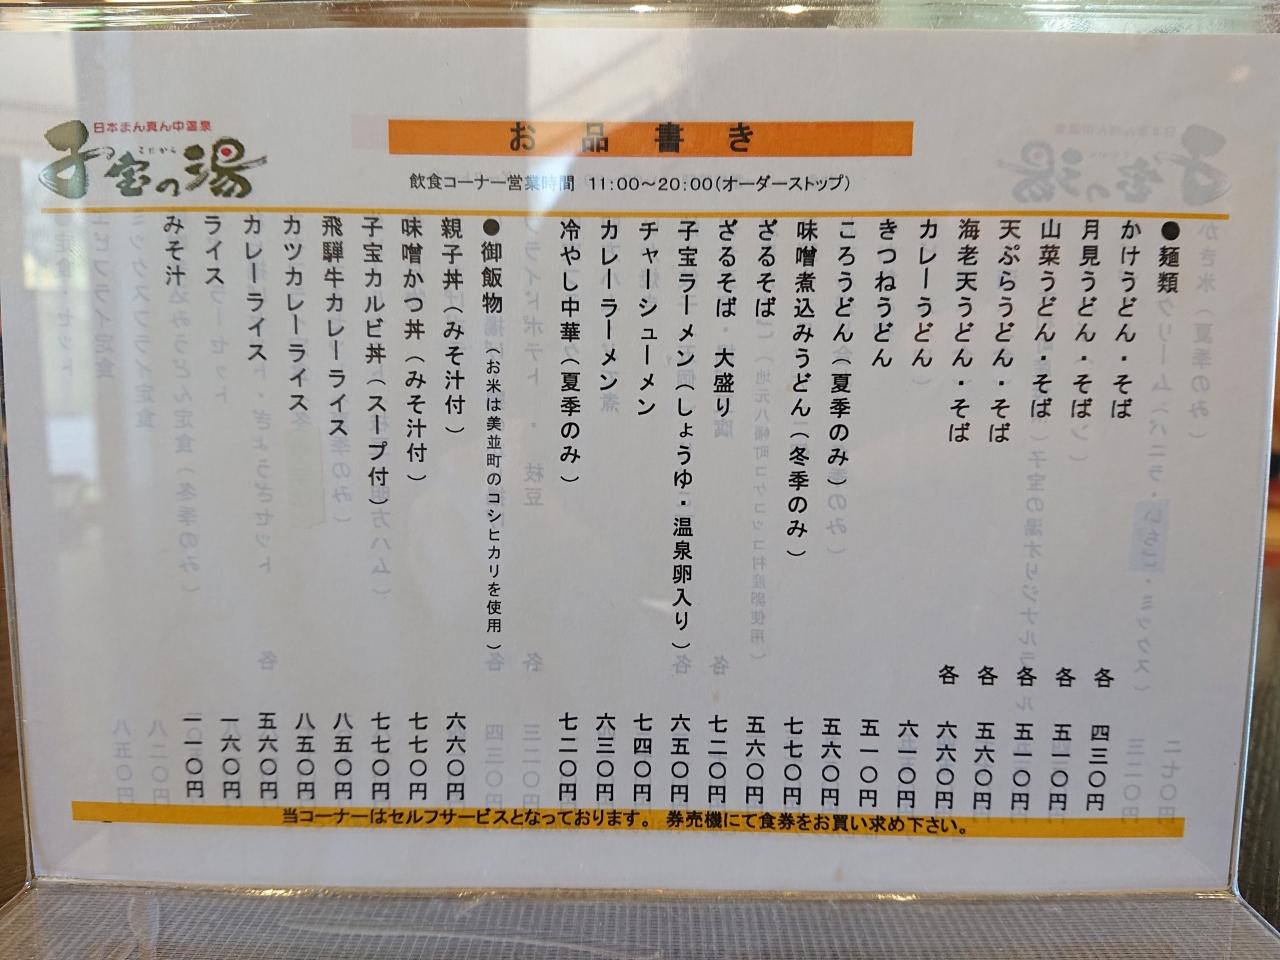 日本まん真ん中温泉
こだから
子宝の湯
お品書き
飲食コーナー営業時間 11:00～20:00(オーダーストップ)
●麺類
かけうどん・そば 各 四三〇円
月見うどん・そば 各 五一〇円
山菜うどん・そば 各 五一〇円
天ぷらうどん・そば 各 五六〇円
海老天うどん・そば 各 六六〇円
カレーうどん 六一〇円
きつねうどん 五一〇円
ころうどん（夏季のみ） 五六〇円
味噌煮込みうどん（冬季のみ） 七七〇円
ざるそば 五六〇円
ざるそば 大盛り 七二〇円
子宝ラーメン（しょうゆ・温泉卵入り） 六五〇円
チャーシューメン 七四〇円
カレーラーメン 六三〇円
冷やし中華（夏季のみ） 七二〇円
●御飯物（お米は美並町のコシヒカリを使用）
親子丼（みそ汁付） 六六〇円
味噌かつ丼（みそ汁付） 七七〇円
子宝カルビ丼（スープ付） 七七〇円
飛騨牛カレーライス 八五〇円
カツカレーライス 八五〇円
カレーライス 五六〇円
ライス 一六〇円
みそ汁 一一〇円
当コーナーはセルフサービスとなっております。 券売機にて食券をお買い求め下さい。